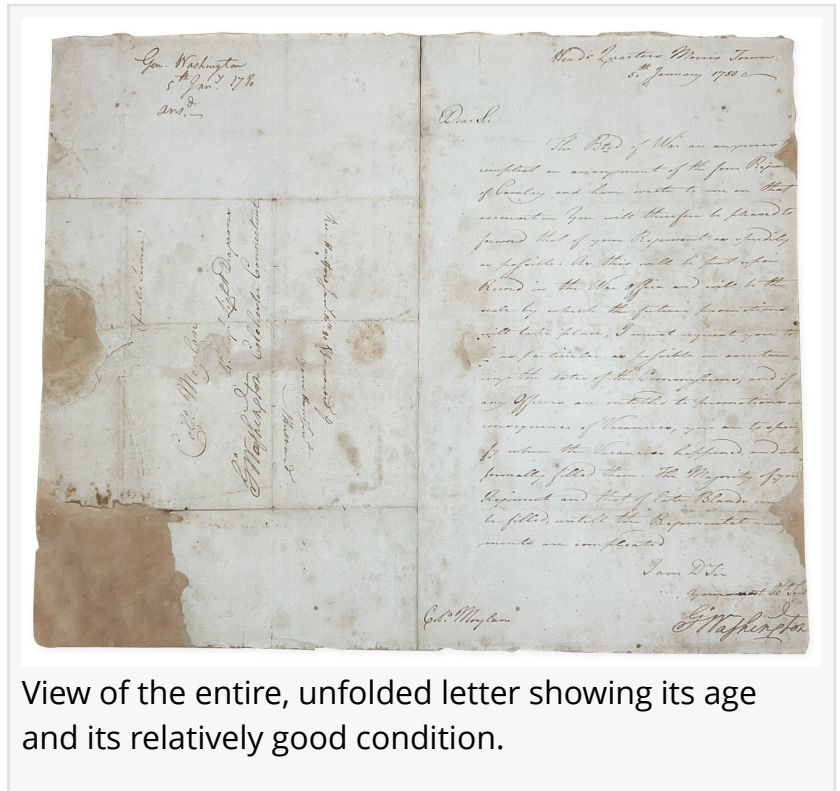 Gen. Washington
5th Jany. 1780
ansd.
Colo. Moylan
Light Dragoons
GWashington Colchester Connecticut
Head Quarters Morris Town
5th January 1780
Dear Sir
The Bod of War are anxious
compleat an arrangement of the four Regim
of Cavalry and have wrote to me on that
account— You will therefore be pleased to
forward that of your Regiment as speedily
as possible. As this will be put upon
Record in the War Office and will be the
scale by which the future promotions
will take place, I must request you
be as particular as possible in ascertain
ing the dates of the Commissions, and if
any Officers are entitled to promotions in
consequence of Vacancies, you are to speci
fy when the Vacancies happened, and who
formally filled them. The Majority of your
Regiment and that of Colo Blands
be filled, untill the Regimental
ments are compleated
I am D Sir
Your most Ob. Serv
GWashington
Colo. Moylan
View of the entire, unfolded letter showing its age
and its relatively good condition.